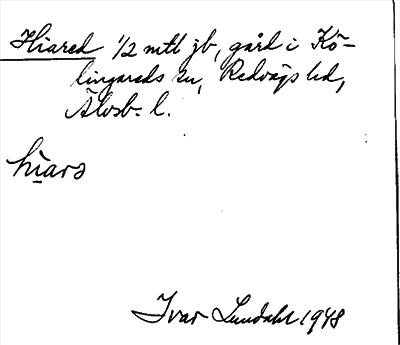 Hiared 1/2 mtl jb, gård i Kö-
lingareds sn, Redvägs hd,
Älvsb. l.
hi̱ars
Ivar Lundahl 1948